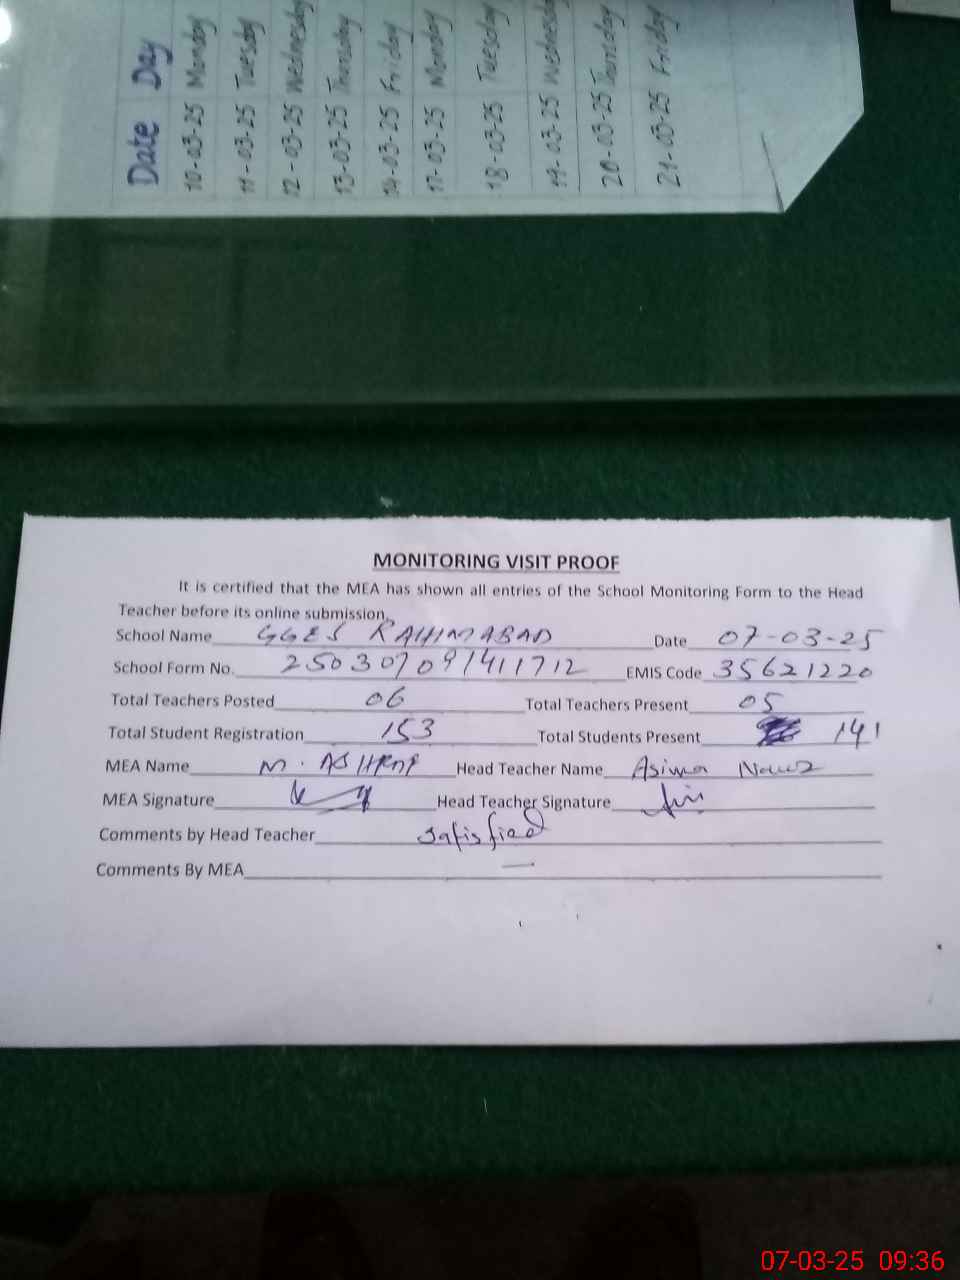 Date Day
10-03-25 Monday
11-03-25 Tuesday
12-03-25 Wednesday
13-03-25 Thursday
14-03-25 Friday
17-03-25 Monday
18-03-25 Tuesday
19-03-25 Wednesday
20-03-25 Thursday
21-03-25 Friday
MONITORING VISIT PROOF
It is certified that the MEA has shown all entries of the School Monitoring Form to the Head
Teacher before its online submission.
School Name GGES RAHIMABAD Date 07-03-25
School Form No. 250307091411712 EMIS Code 35621220
Total Teachers Posted 06 Total Teachers Present 05
Total Student Registration 153 Total Students Present 141
MEA Name M. ASHRAF Head Teacher Name Asima Nawaz
MEA Signature Head Teacher Signature
Comments by Head Teacher satisfied
Comments By MEA —
07-03-25 09:36